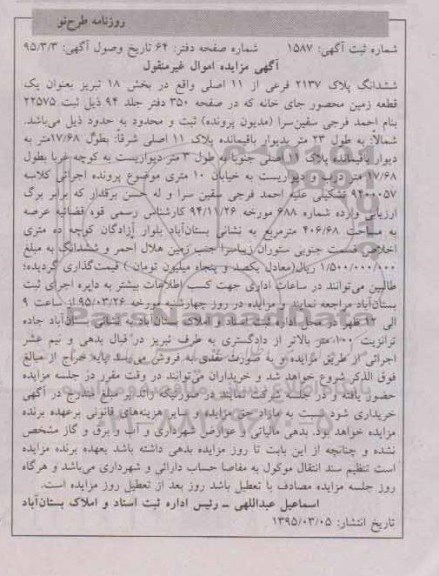 روزنامه طرح‌نو
شماره ثبت آگهی: ۱۵۸۷ شماره صفحه دفتر: ۶۴ تاریخ وصول آگهی: ۹۵/۳/۳
آگهی مزایده اموال غیرمنقول
ششدانگ پلاک ۲۱۳۷ فرعی از ۱۱ اصلی واقع در بخش ۱۸ تبریز بعنوان یک
قطعه زمین محصور جای خانه که در صفحه ۳۵۰ دفتر جلد ۹۴ ذیل ثبت ۲۲۵۷۵
بنام احمد فرجی سقین‌سرا (مدیون پرونده) ثبت و محدود به حدود ذیل می‌باشد.
شمالاً: به طول ۲۳ متر بدیوار باقیمانده پلاک ۱۱ اصلی شرقاً: بطول ۱۷/۶۸متر به
دیوار باقیمانده پلاک ۱۱ اصلی جنوباً به طول ۳ متر دیواریست به کوچه غرباً بطول
۱۷/۶۸ متر درب و دیواریست به خیابان ۱۰ متری موضوع پرونده اجرائی کلاسه
۹۴۰۰۰۵۷ تشکیلی علیه احمد فرجی سقین سرا و له حسن برقدار که برابر برگ
ارزیابی وارده شماره ۶۸۸ مورخه ۹۴/۱۱/۲۶ کارشناس رسمی قوه قضائیه عرصه
به مساحت ۴۰۶/۶۸ مترمربع به نشانی بستان‌آباد بلوار آزادگان کوچه ده متری
اخلاص قسمت جنوبی ستوران زیبامنزا جنب زمین هلال احمر و ششدانگ به مبلغ
۱/۵۰۰/۰۰۰/۰۰۰ ریال(معادل یکصد و پنجاه میلیون تومان ) قیمت‌گذاری گردیده؛
طالبین می‌توانند در ساعات اداری جهت کسب اطلاعات بیشتر به دایره اجرای ثبت
بستان‌آباد مراجعه نمایند و مزایده در روز چهارشنبه مورخه ۹۵/۰۳/۲۶ از ساعت ۹
الی ۱۲ ظهر در محل اداره ثبت اسناد و املاک بستان‌آباد به نشانی بستان‌آباد جاده
ترانزیت ۱۰۰ متر بالاتر از دادگستری به طرف تبریز در قبال بدهی و نیم عشر
اجرائی از طریق مزایده و به صورت نقدی به فروش می‌رسد پایه حراج از مبالغ
فوق الذکر شروع خواهد شد و خریداران می‌توانند در وقت مقرر در جلسه مزایده
حضور یافته و در جلسه شرکت نمایند درصورتیکه زائد بر مبلغ مندرج در آگهی
خریداری شود نسبت به مازاد حق مزایده و سایر هزینه‌های قانونی برعهده برنده
مزایده خواهد بود. بدهی مالیاتی و عوارض شهرداری و آب و برق و گاز مشخص
نشده و چنانچه از این بابت تا روز مزایده بدهی داشته باشد بعهده برنده مزایده
است تنظیم سند انتقال موکول به مفاصا حساب دارائی و شهرداری می‌باشد و هرگاه
روز جلسه مزایده مصادف با تعطیل باشد روز بعد از تعطیل روز مزایده است.
اسماعیل عبداللهی ــ رئیس اداره ثبت اسناد و املاک بستان‌آباد
تاریخ انتشار: ۱۳۹۵/۰۳/۰۵
ParsNamadData